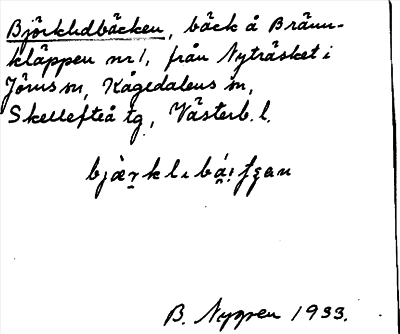 Björklidbäcken, bäck å Bränn-
kläppen nr 1, från Nyträsket i
Jörns sn, Kågedalens sn,
Skellefteå tg, Västerb. l.
B. Nygren 1933.